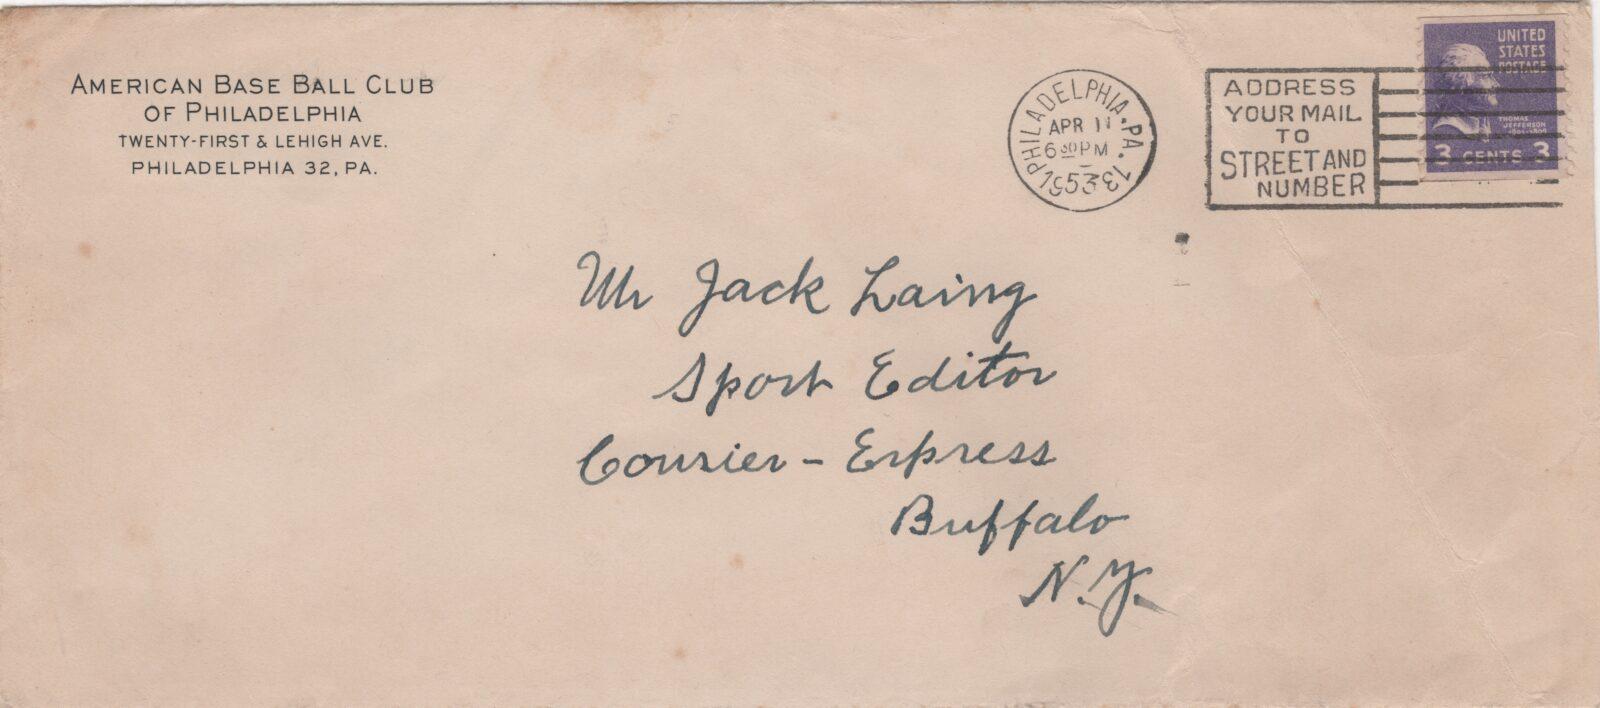 AMERICAN BASE BALL CLUB
OF PHILADELPHIA
TWENTY-FIRST & LEHIGH AVE.
PHILADELPHIA 32, PA.
PHILADELPHIA, PA. 13
APR 11
6 30 PM
1953
ADDRESS
YOUR MAIL
TO
STREET AND
NUMBER
UNITED
STATES
POSTAGE
THOMAS
JEFFERSON
1801-1809
3 CENTS 3
Mr Jack Laing
Sport Editor
Courier - Express
Buffalo
N.Y.